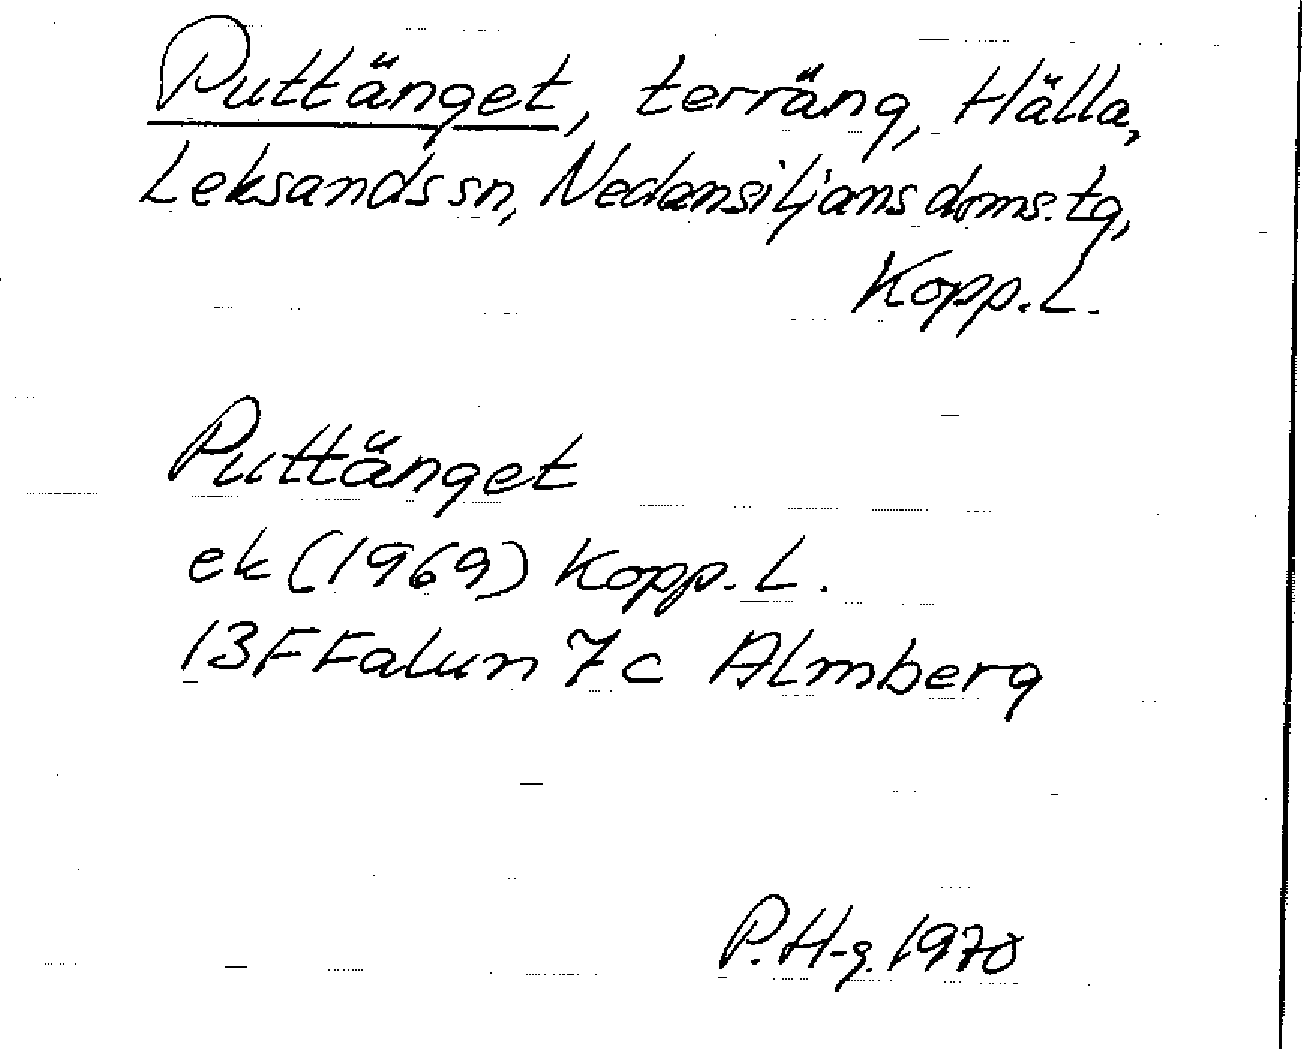 Puttänget, terräng, Hälla,
Leksands sn, Nedansiljans doms. tg,
Kopp. L.
Puttänget
ek (1969) Kopp. L.
13F Falun 7c Almberg
P. H-g. 1970